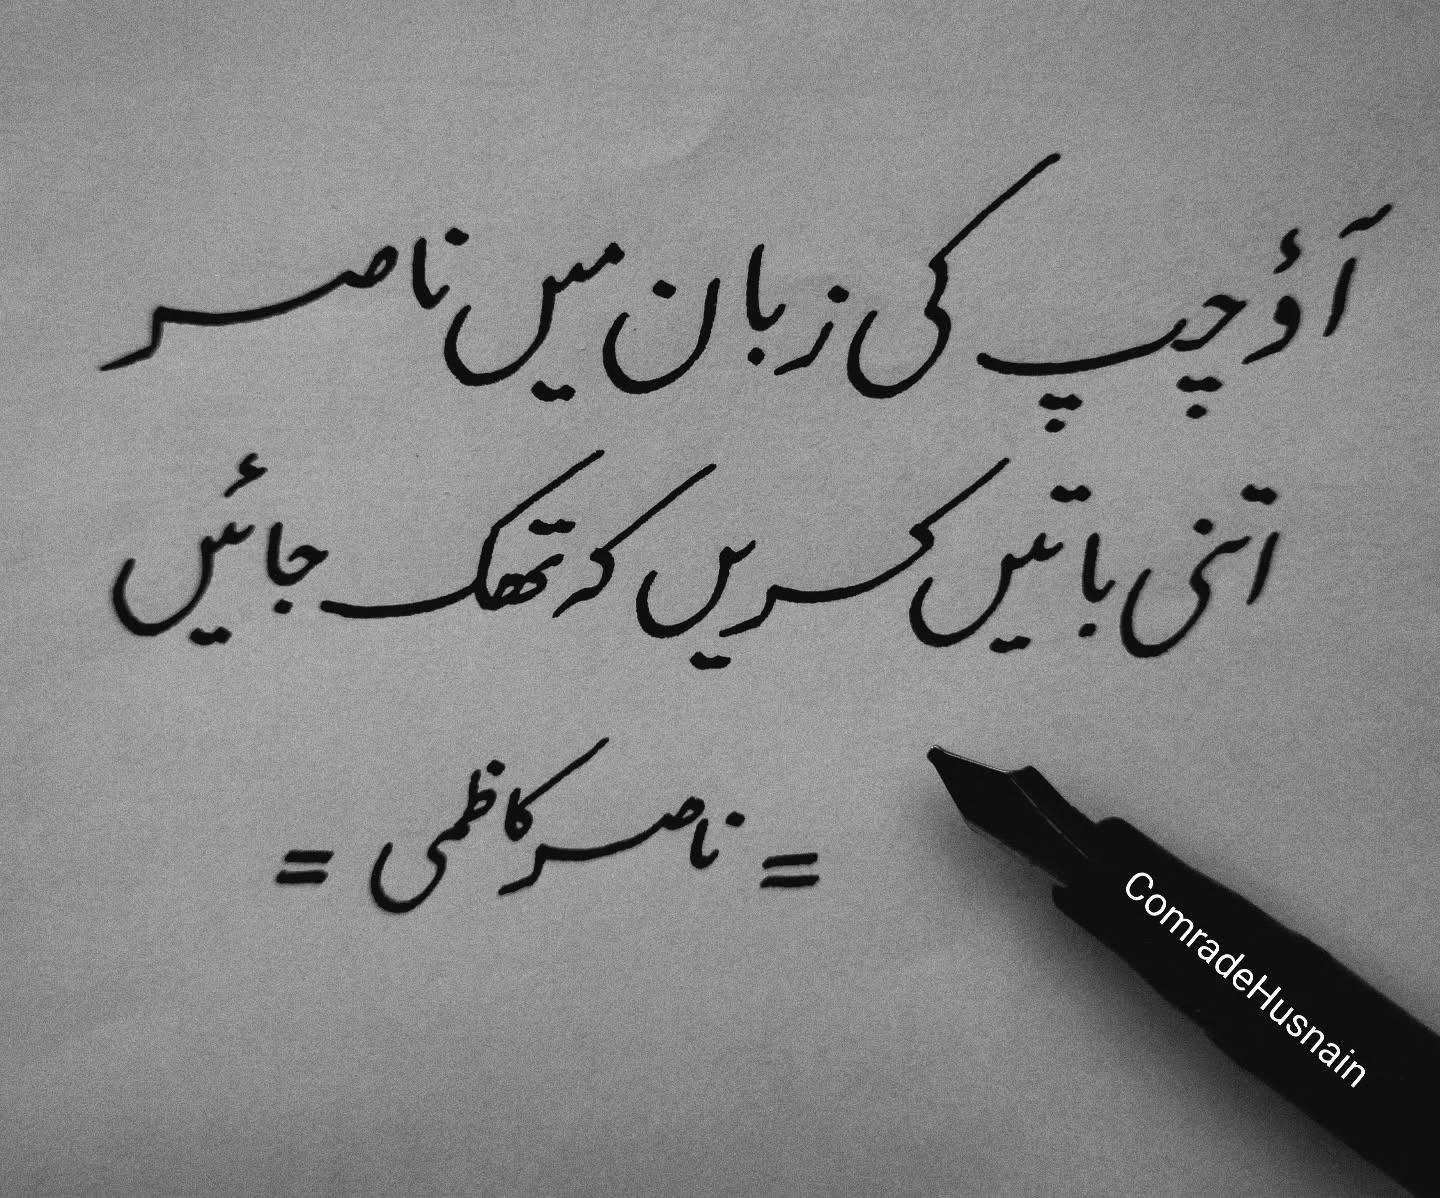 آؤ چپ کی زبان میں ناصر
اتنی باتیں کریں کہ تھک جائیں
= ناصر کاظمی =
ComradeHusnain